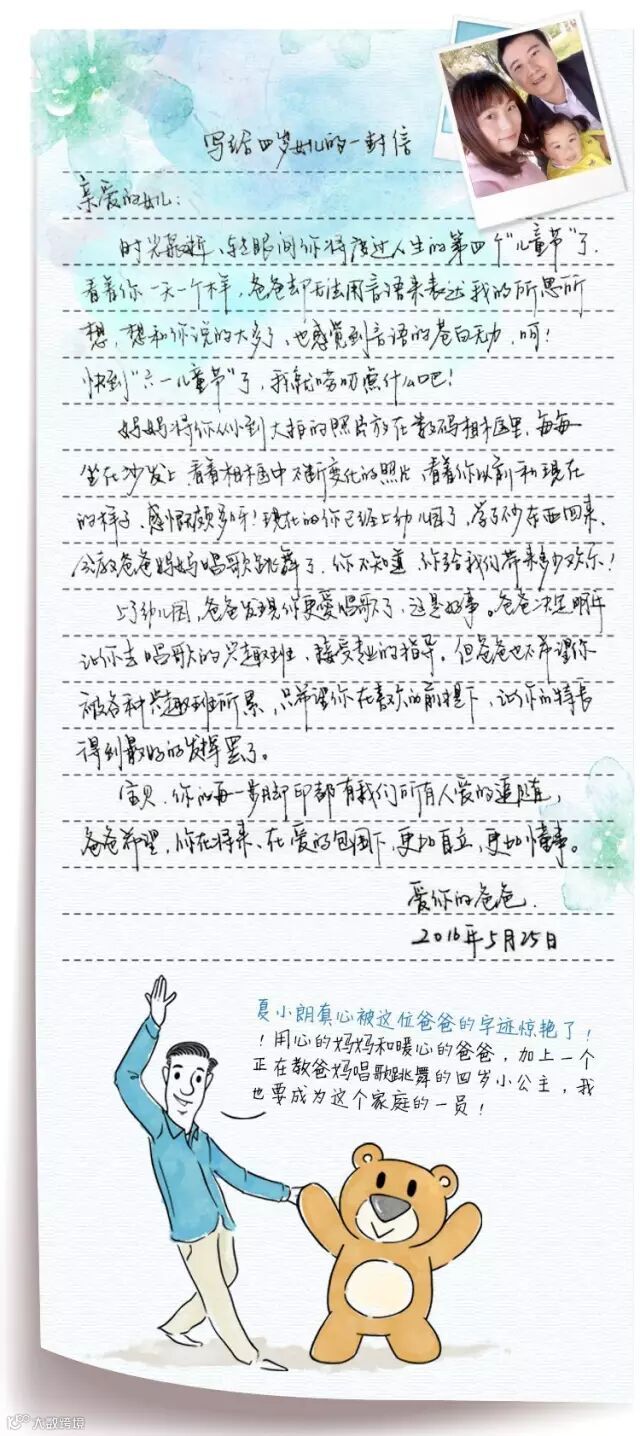 写给四岁女儿的一封信
亲爱的女儿：
时光最近、转眼间你将度过人生的第四个“儿童节”了.
看着你一天一个样，爸爸却无法用言语来表达我的所思所
想，想和你说的太多了、也感觉到言语的苍白无力，呵！
快到“六一儿童节”了，我就唠叨点什么吧！
妈妈将你从小到大拍的照片放在数码相框里，每每
坐在沙发上，看着相框中不断变化的照片，看着你以前和现在
的样子、感慨颇多呀！现在的你已经上幼儿园了，学了不少东西回来、
会教爸爸妈妈唱歌跳舞了，你不知道，你给我们带来多少欢乐！
上了幼儿园，爸爸发现你更爱唱歌了，这是好事。爸爸决定明年
让你去唱歌的兴趣班、接受专业的指导。但爸爸也不希望你
被各种兴趣班所累，只希望你在喜欢的前提下、让你的特长
得到最好的发挥罢了。
宝贝，你的每一步脚印都有我们所有人爱的追随，
爸爸希望，你在将来、在爱的包围下，更加自立，更加懂事。
爱你的爸爸.
2016年5月25日
夏小朗真心被这位爸爸的字迹惊艳了！
！用心的妈妈和暖心的爸爸，加上一个
正在教爸妈唱歌跳舞的四岁小公主，我
也要成为这个家庭的一员！
大数跨境